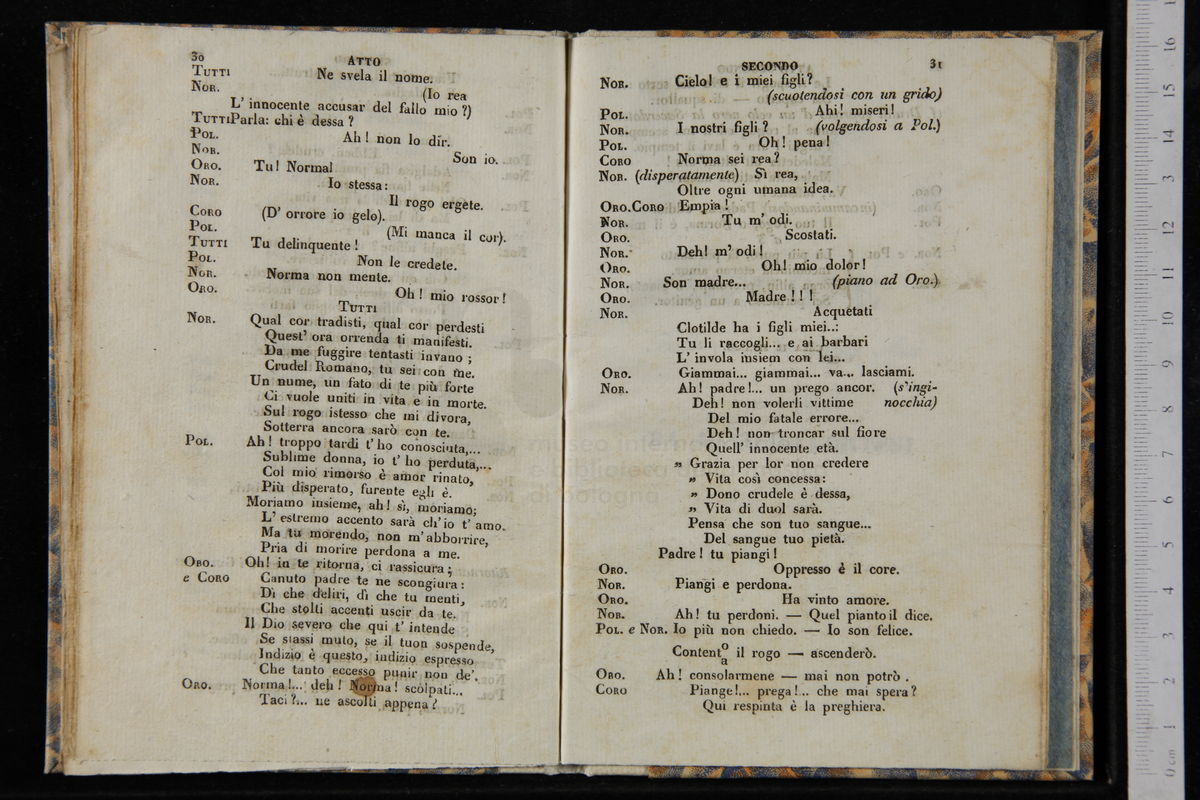 30
ATTO
TUTTI Ne svela il nome.
NOR. (Io rea
L' innocente accusar del fallo mio?)
TUTTI Parla: chi è dessa?
POL. Ah! non lo dir.
NOR. Son io.
ORO. Tu! Norma!
NOR. Io stessa:
Il rogo ergete.
CORO (D' orrore io gelo).
POL. (Mi manca il cor).
TUTTI Tu delinquente!
POL. Non le credete.
NOR. Norma non mente.
ORO. Oh! mio rossor!
TUTTI
NOR. Qual cor tradisti, qual cor perdesti
Quest' ora orrenda ti manifesti.
Da me fuggire tentasti invano;
Crudel Romano, tu sei con me.
Un nume, un fato di te più forte
Ci vuole uniti in vita e in morte.
Sul rogo istesso che mi divora,
Sotterra ancora sarò con te.
POL. Ah! troppo tardi t' ho conosciuta,...
Sublime donna, io t' ho perduta,...
Col mio rimorso è amor rinato,
Più disperato, furente egli è.
Moriamo insieme, ah! sì, moriamo;
L' estremo accento sarà ch'io t' amo.
Ma tu morendo, non m' abborrire,
Pria di morire perdona a me.
ORO. Oh! in te ritorna, ci rassicura;
e CORO Canuto padre te ne scongiura:
Dì che deliri, dì che tu menti,
Che stolti accenti uscir da te.
Il Dio severo che qui t' intende
Se stassi muto, se il tuon sospende,
Indizio è questo, indizio espresso
Che tanto eccesso punir non de'.
ORO. Norma!... deh! Norma! scolpati...
Taci?... ne ascolti appena?
SECONDO
31
NOR. Cielo! e i miei figli?
(scuotendosi con un grido)
POL. Ahi! miseri!
NOR. I nostri figli? (volgendosi a Pol.)
POL. Oh! pena!
CORO Norma sei rea?
NOR. (disperatamente) Sì rea,
Oltre ogni umana idea.
ORO. CORO Empia!
NOR. Tu m' odi.
ORO. Scostati.
NOR. Deh! m' odi!
ORO. Oh! mio dolor!
NOR. Son madre... (piano ad Oro.)
ORO. Madre!!!
NOR. Acquetati
Clotilde ha i figli miei..:
Tu li raccogli... e ai barbari
L' invola insiem con lei...
ORO. Giammai... giammai... va... lasciami.
NOR. Ah! padre!... un prego ancor. (s'ingi-
Deh! non volerli vittime nocchia)
Del mio fatale errore...
Deh! non troncar sul fiore
Quell' innocente età.
„ Grazia per lor non credere
„ Vita così concessa:
„ Dono crudele è dessa,
„ Vita di duol sarà.
Pensa che son tuo sangue...
Del sangue tuo pietà.
Padre! tu piangi!
ORO. Oppresso è il core.
NOR. Piangi e perdona.
ORO. Ha vinto amore.
NOR. Ah! tu perdoni. — Quel pianto il dice.
POL. e NOR. Io più non chiedo. — Io son felice.
Content o/a il rogo — ascenderò.
ORO. Ah! consolarmene — mai non potrò.
CORO Piange!... prega!... che mai spera?
Qui respinta è la preghiera.